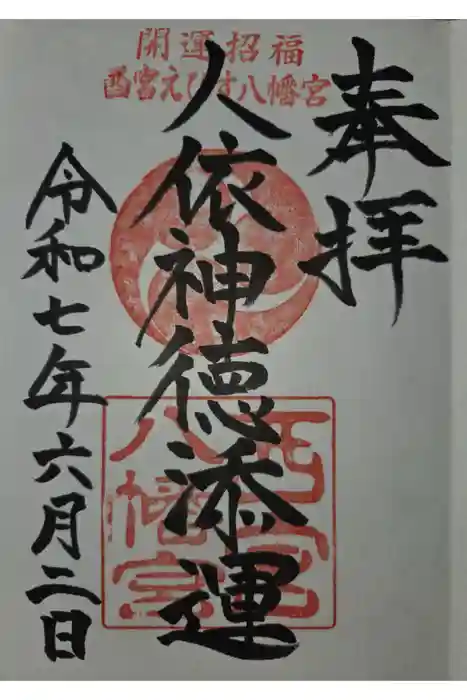 開運招福
酉宮えびす八幡宮
奉拝
人依神徳添運
令和七年六月二日
西宮
八幡宮